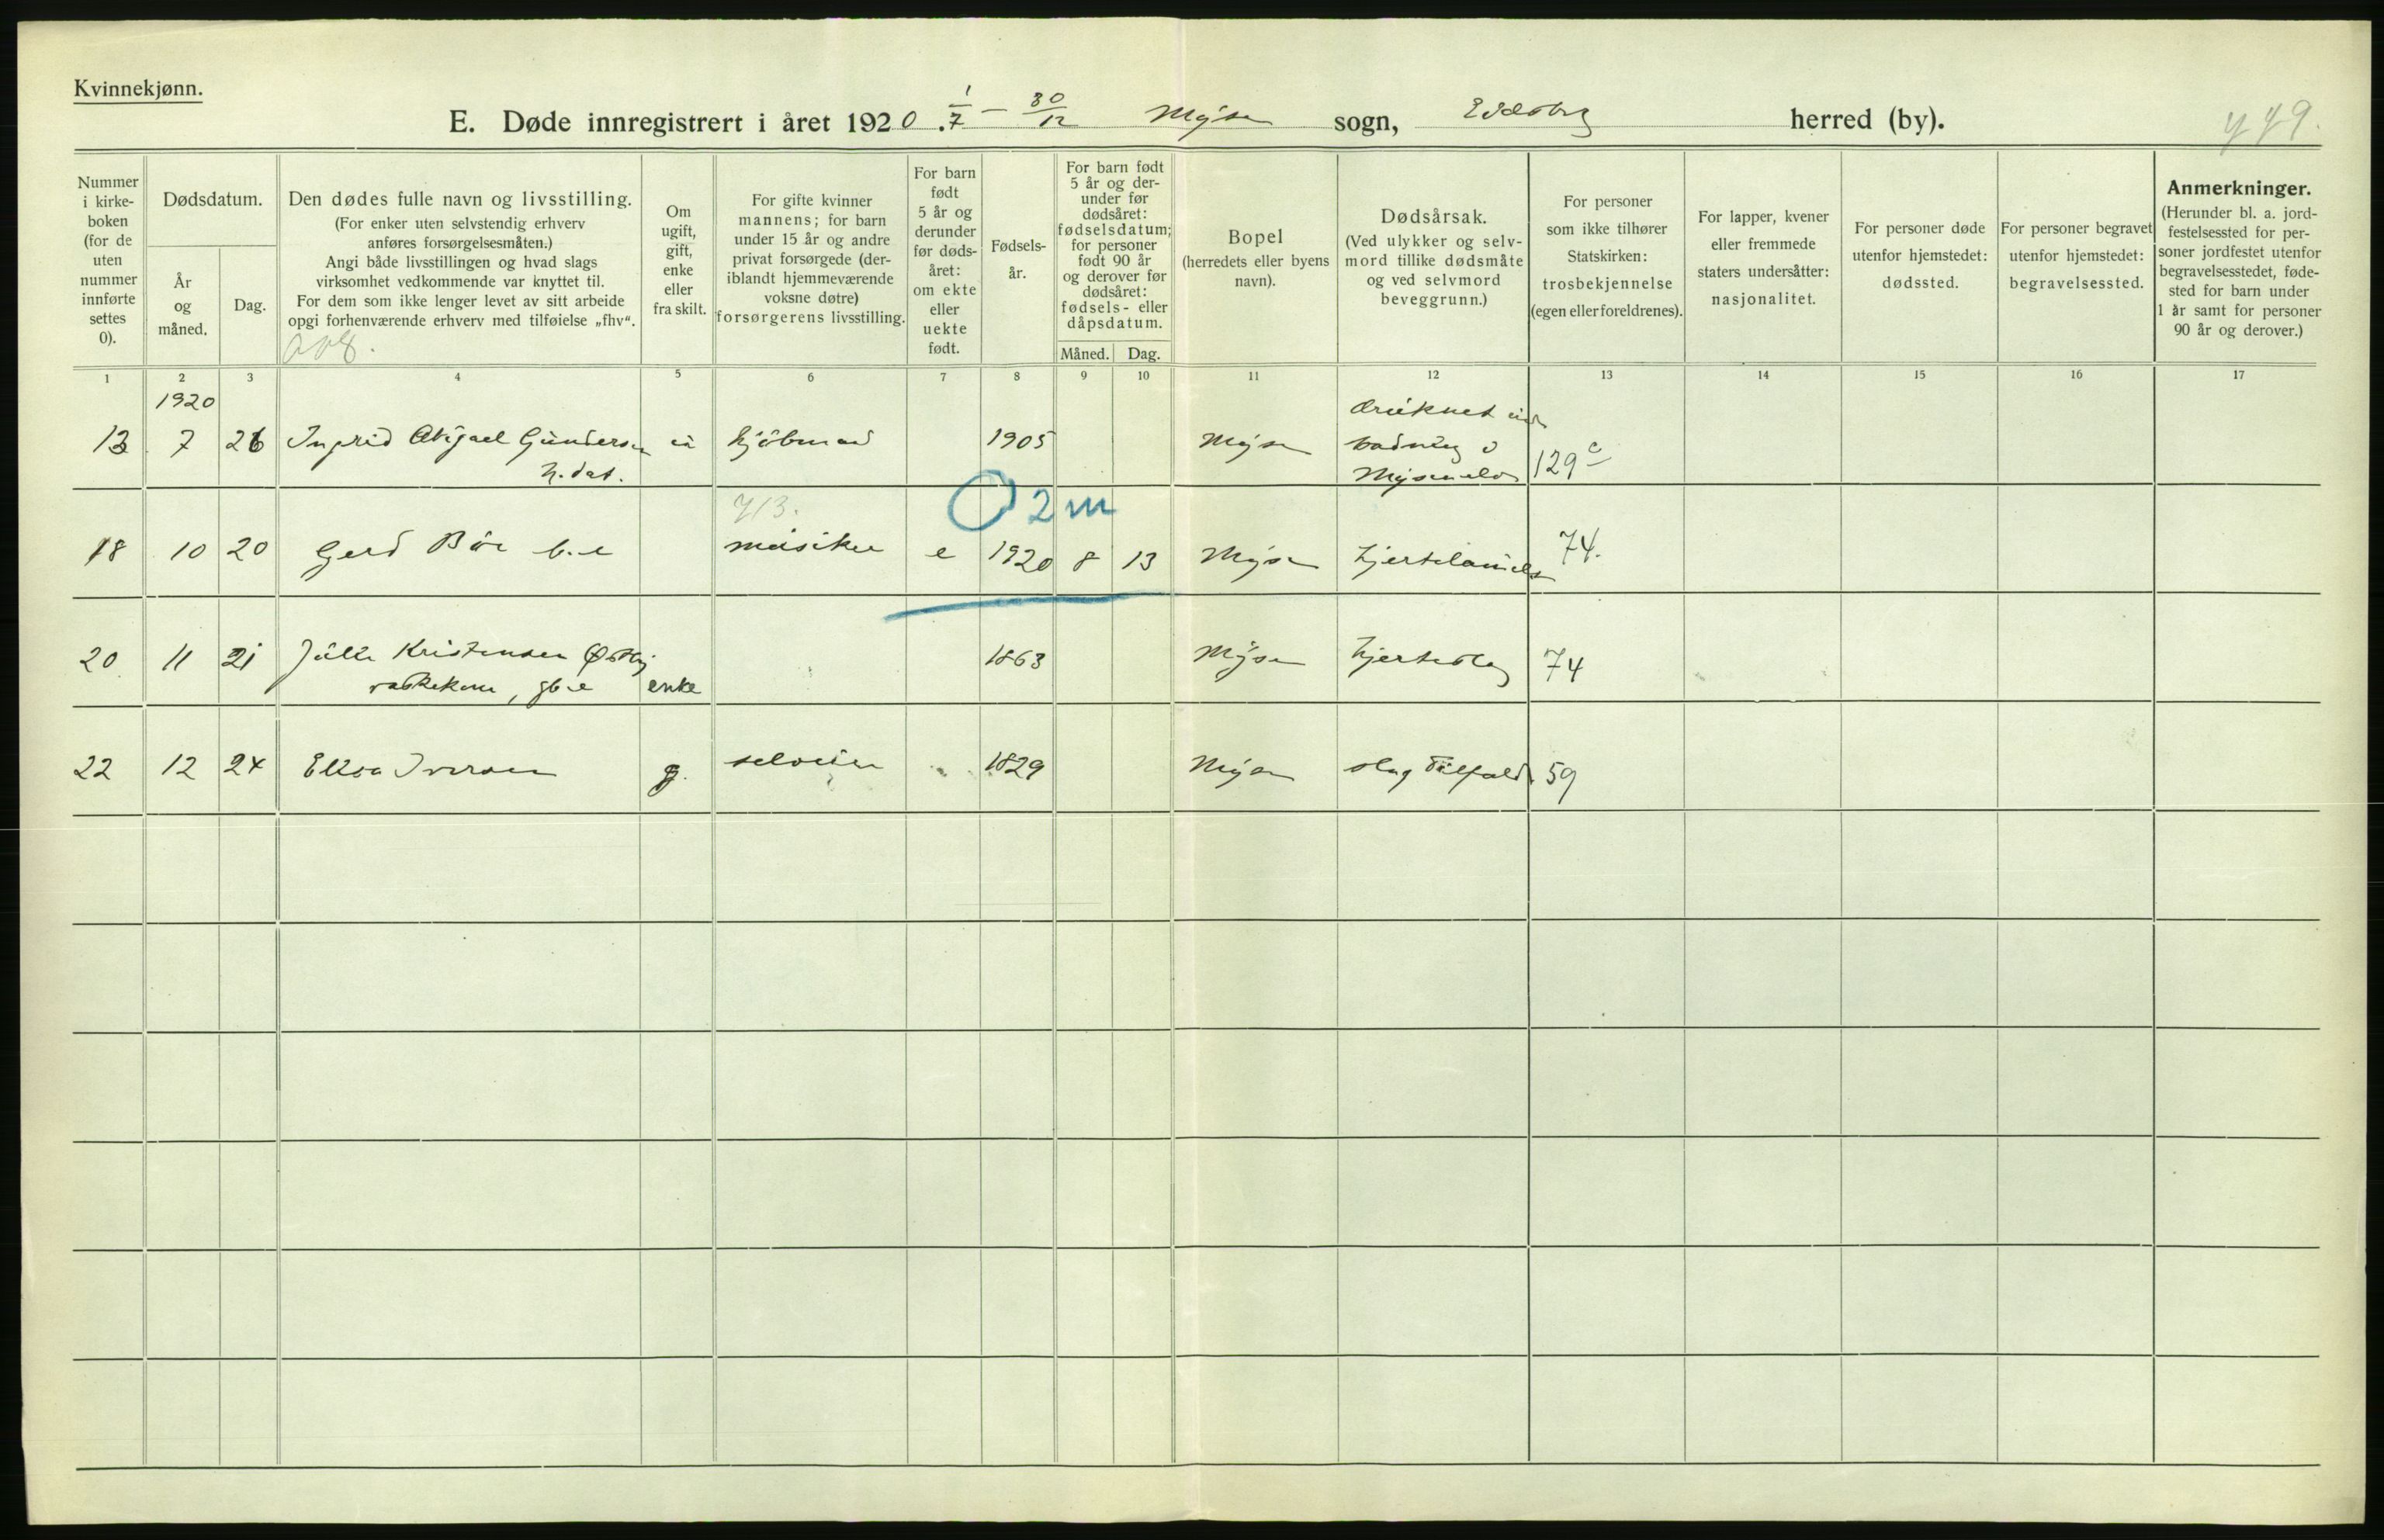 Kvinnekjønn.
E. Døde innregistrert i året 1920. 1/7 – 30/12 Mysen sogn, Eidsberg herred (by).
449.
Nummer i kirke-boken (for de uten nummer innførte settes 0).
Dødsdatum.
År og måned.
Dag.
Den dødes fulle navn og livsstilling.
(For enker uten selvstendig erhverv
anføres forsørgelsesmåten.)
Angi både livsstillingen og hvad slags
virksomhet vedkommende var knyttet til.
For dem som ikke lenger levet av sitt arbeide
opgi forhenværende erhverv med tilføielse „fhv“.
Om ugift, gift, enke eller fraskilt.
For gifte kvinner
mannens; for barn
under 15 år og andre
privat forsørgede (der-
iblandt hjemmeværende
voksne døtre)
forsørgerens livsstilling.
For barn
født
5 år og
derunder
før døds-
året:
om ekte
eller
uekte
født.
Fødsels-
år.
For barn født
5 år og der-
under før
dødsåret:
fødselsdatum;
for personer
født 90 år
og derover før
dødsåret:
fødsels- eller
dåpsdatum.
Måned. Dag.
Bopel
(herredets eller byens
navn).
Dødsårsak.
(Ved ulykker og selv-
mord tillike dødsmåte
og ved selvmord
beveggrunn.)
For personer
som ikke tilhører
Statskirken:
trosbekjennelse
(egen eller foreldrenes).
For lapper, kvener
eller fremmede
staters undersåtter:
nasjonalitet.
For personer døde
utenfor hjemstedet:
dødssted.
For personer begravet
utenfor hjemstedet:
begravelsessted.
Anmerkninger.
(Herunder bl. a. jord-
festelsessted for per-
soner jordfestet utenfor
begravelsesstedet, føde-
sted for barn under
1 år samt for personer
90 år og derover.)
1 2 3 4 5 6 7 8 9 10 11 12 13 14 15 16 17
1920
13 7 26 Ingrid Abigael Gundersen u kjøbmand 1905 Mysen druknet
h. dat.
badning i
Mysenelv 129 c
713.
2 m
18 10 20 Gerd Bøe b.e musiker e 1920 8 13 Mysen hjertelammels 74.
20 11 21 Julie Kristensen Østby 1863 Mysen hjerteslag 74
vaskekone, gb.e enke
22 12 24 Elisa Iversen g. selveier 1829 Mysen slagtilfeld 59